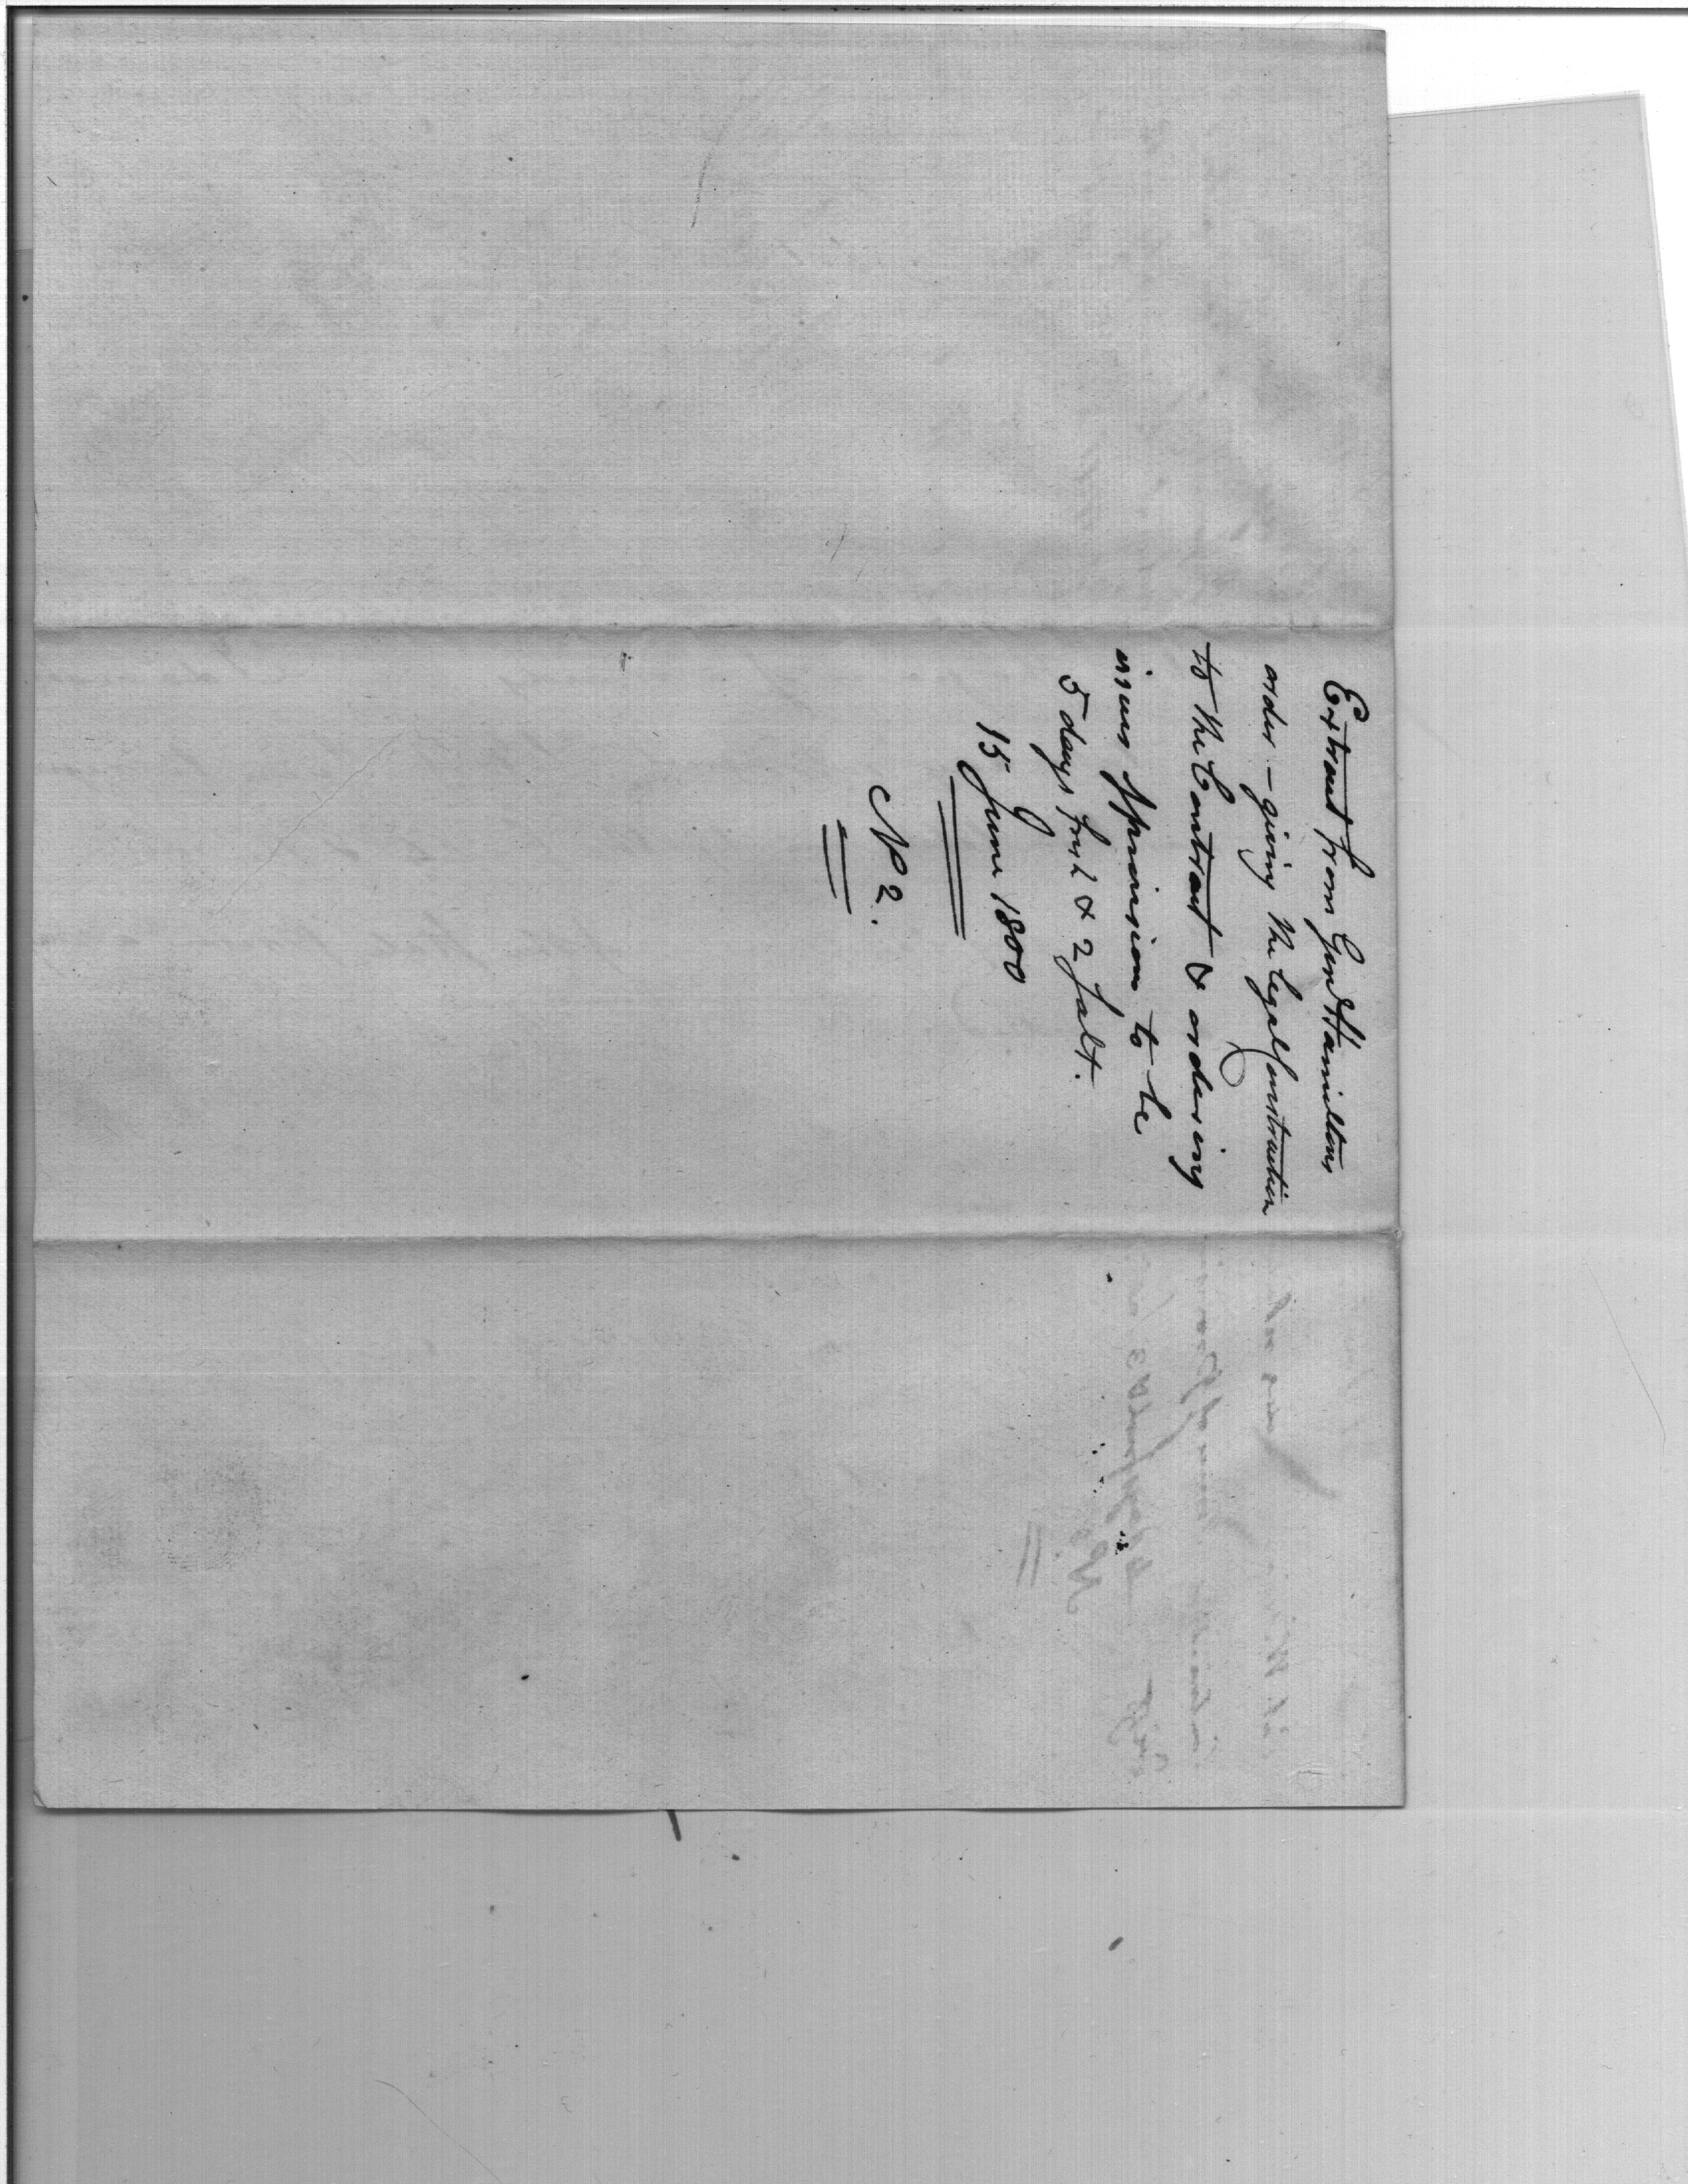 Extract from Genl Hamiltons
order – giving the legal Construction
to the Contract & ordering
issues provisions to be
5 days fresh & 2 Salt.
15 June 1800
No 2.